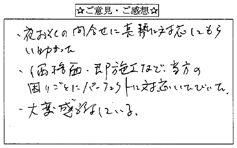 ☆ご意見・ご感想☆
・夜おそくの問合せに真摯に対応してもらい助かった
・価格面・即施工など、当方の
困りごとにパーフェクトに対応いただいた。
・大変感謝している。